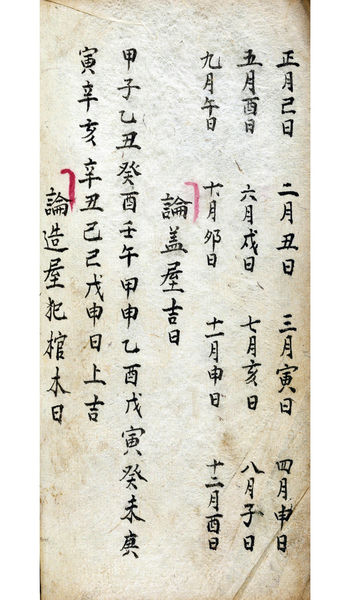 正月己日 二月丑日 三月寅日 四月申日
五月酉日 六月戍日 七月亥日 八月子日
九月午日 十月夘日 十一月申日 十二月酉日
論盖屋吉日
甲子乙丑癸酉壬午甲申乙酉戊寅癸未庚
寅辛亥辛丑己己戊申日上吉
論造屋犯棺木日